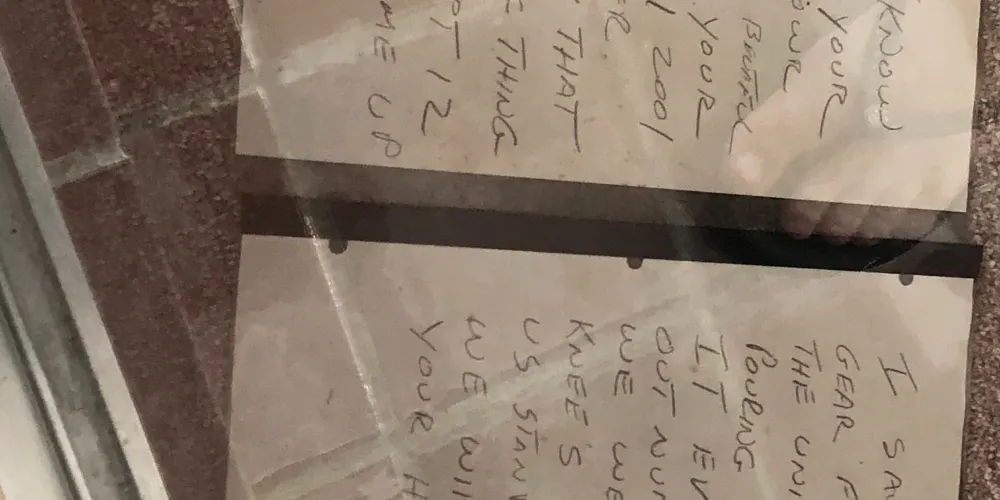 KNOW
YOUR
YOUR
2001
R.
THAT
THING
OT 12
ME UP
I SA
GEAR F
THE UNI
POURING
IT EV
OUT NUM
WE WE
KNEE'S
US STAN
WE WIL
YOUR H